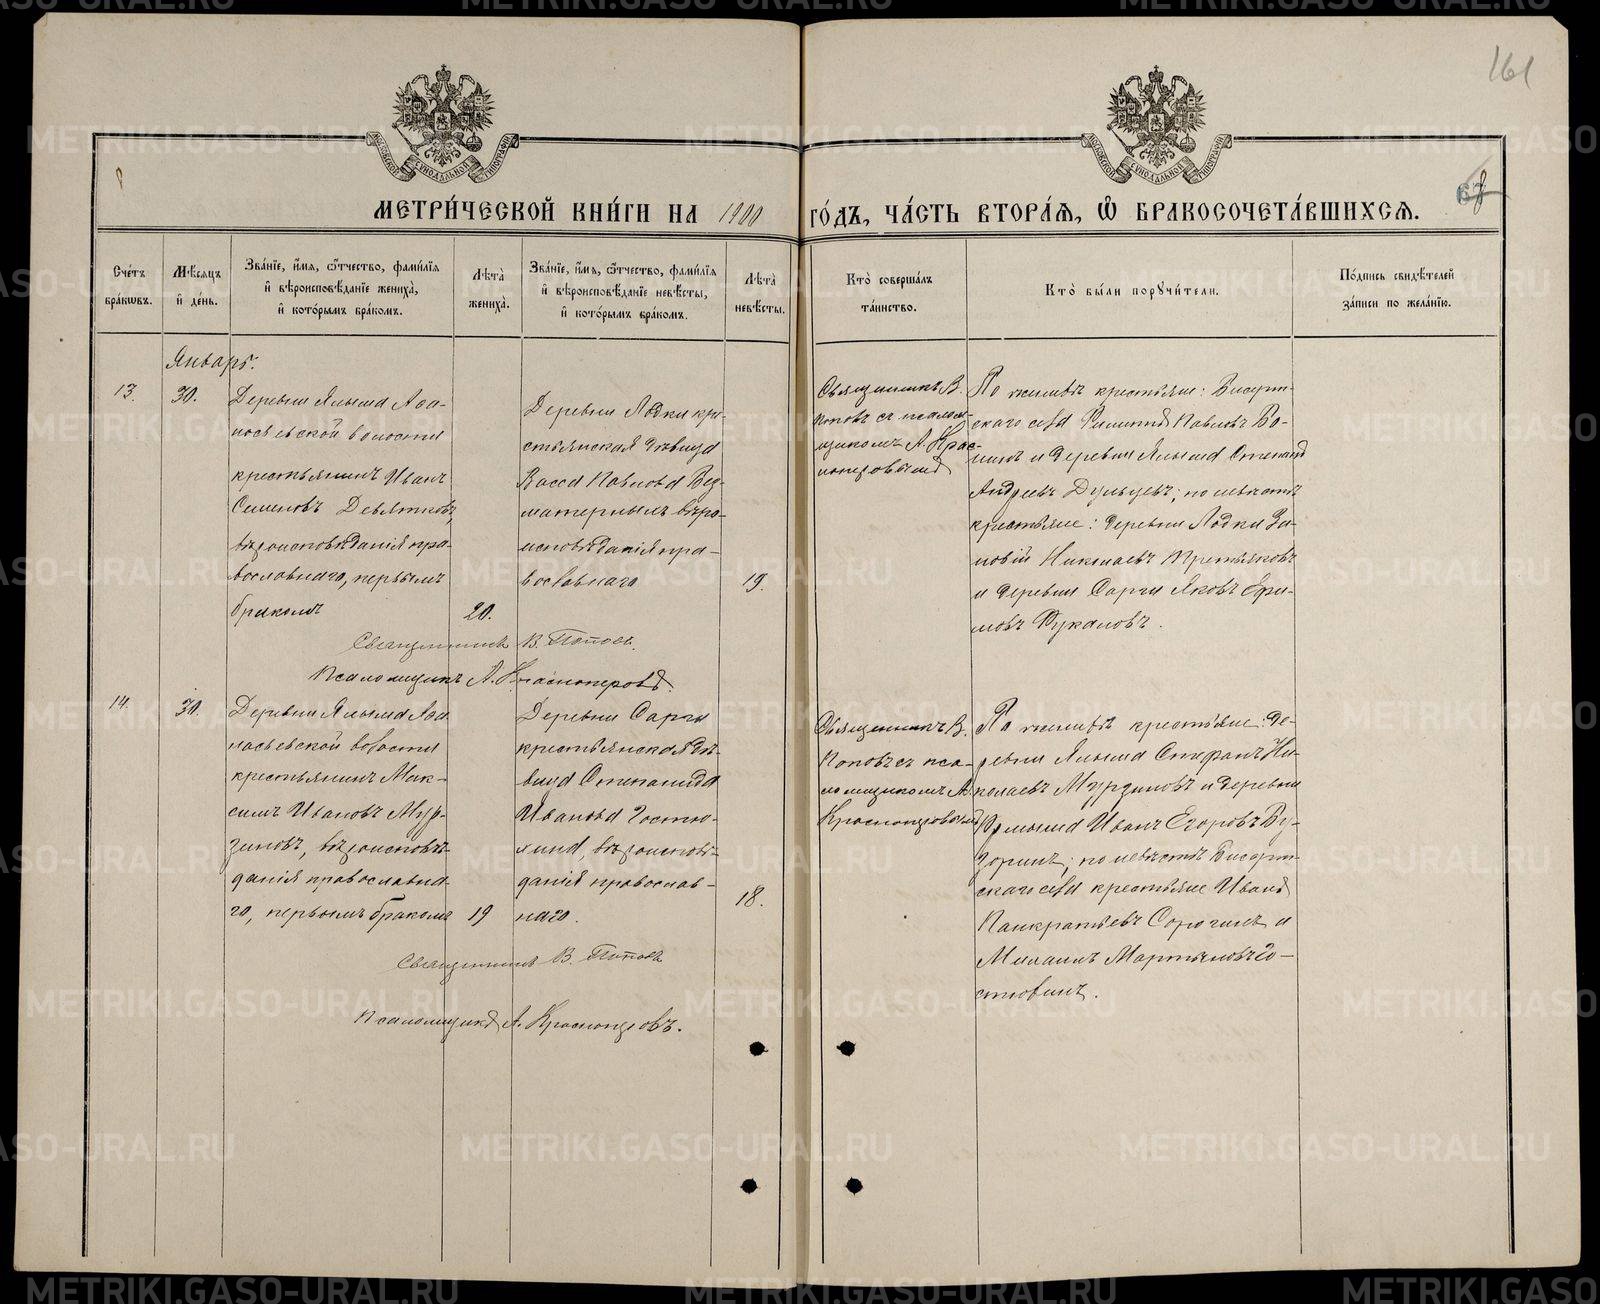 161
МЕТРИ́ЧЕСКОЙ КНИ́ГИ НА 1900 ГО́ДЪ, ЧА́СТЬ ВТОРА́Я, Ѿ БРАКОСОЧЕТА́ВШИХСЯ.
Сче́тъ бра́кѡвъ.
Мѣ́сяцъ и҆ де́нь.
Зва́нїе, и҆́мя, ѻ҆́тчество, фами́лїя и҆ вѣроисповѣ́данїе жениха̀, и҆ кото́рымъ бра́комъ.
Лѣ́та жениха̀.
Зва́нїе, и҆́мя, ѻ҆́тчество, фами́лїя и҆ вѣроисповѣ́данїе невѣ́сты, и҆ кото́рымъ бра́комъ.
Лѣ́та невѣ́сты.
Кто̀ соверша́лъ та́инство.
Кто̀ бы́ли порꙋчи́тели.
По́дпись свидѣ́телей за́писи по жела́нїю.
Январь.
13.
30.
Деревни Ялыма Афа-
насьевской волости
крестьянинъ Иванъ
Семеновъ Девятковъ,
вѣроисповѣданія пра-
вославнаго, первымъ
бракомъ
20.
Деревни Лодки кре-
стьянская дѣвица
Васса Павлова
вѣро-
исповѣданія пра-
вославнаго
19.
Священникъ В.
Поповъ съ псалом-
щикомъ А. Крас-
ноперовымъ
По женихѣ крестьяне: Бисерт-
скаго села Филиппъ Павловъ
и деревни Ялыма Степанъ
Андреевъ; по невѣстѣ
крестьяне: деревни Лодки Зи-
новій Николаевъ Третьяковъ
и деревни Сарги Яковъ Ефи-
мовъ
Священникъ В. Поповъ.
Псаломщикъ А. Красноперовъ.
14.
30.
Деревни Ялыма Афа
насьевской волости
крестьянинъ Мак-
симъ Ивановъ Мур-
зиновъ, вѣроисповѣ-
данія православна-
го, первымъ бракомъ
19
Деревни Сарги
крестьянская дѣ-
вица Степанида
Иванова Гостю-
хина, вѣроисповѣ-
данія православ-
наго.
18.
Священникъ В.
Поповъ съ пса-
ломщикомъ А.
Красноперовымъ
По женихѣ крестьяне: де-
ревни Ялыма Стефанъ Ни-
колаевъ Мурзиновъ и деревни
Иванъ Егоровъ
по невѣстѣ Бисерт-
скаго села крестьяне Иванъ
Панкратьевъ Сорогинъ и
Михаилъ Мартыновъ Го-
стюхинъ.
Священникъ В. Поповъ
Псаломщикъ А. Красноперовъ.
METRIKI.GASO-URAL.RU